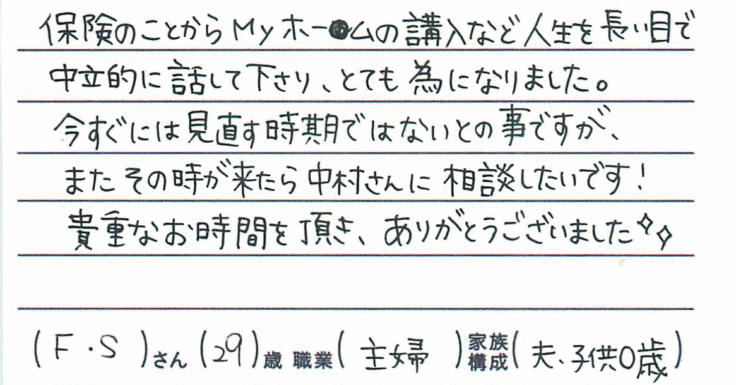 保険のことからMyホー●ムの講入など人生を長い目で
中立的に話して下さり、とても為になりました。
今すぐには見直す時期ではないとの事ですが、
またその時が来たら中村さんに相談したいです!
貴重なお時間を頂き、ありがとうございました✧✧
(F・S)さん(29)歳 職業(主婦)家族構成(夫、子供0歳)